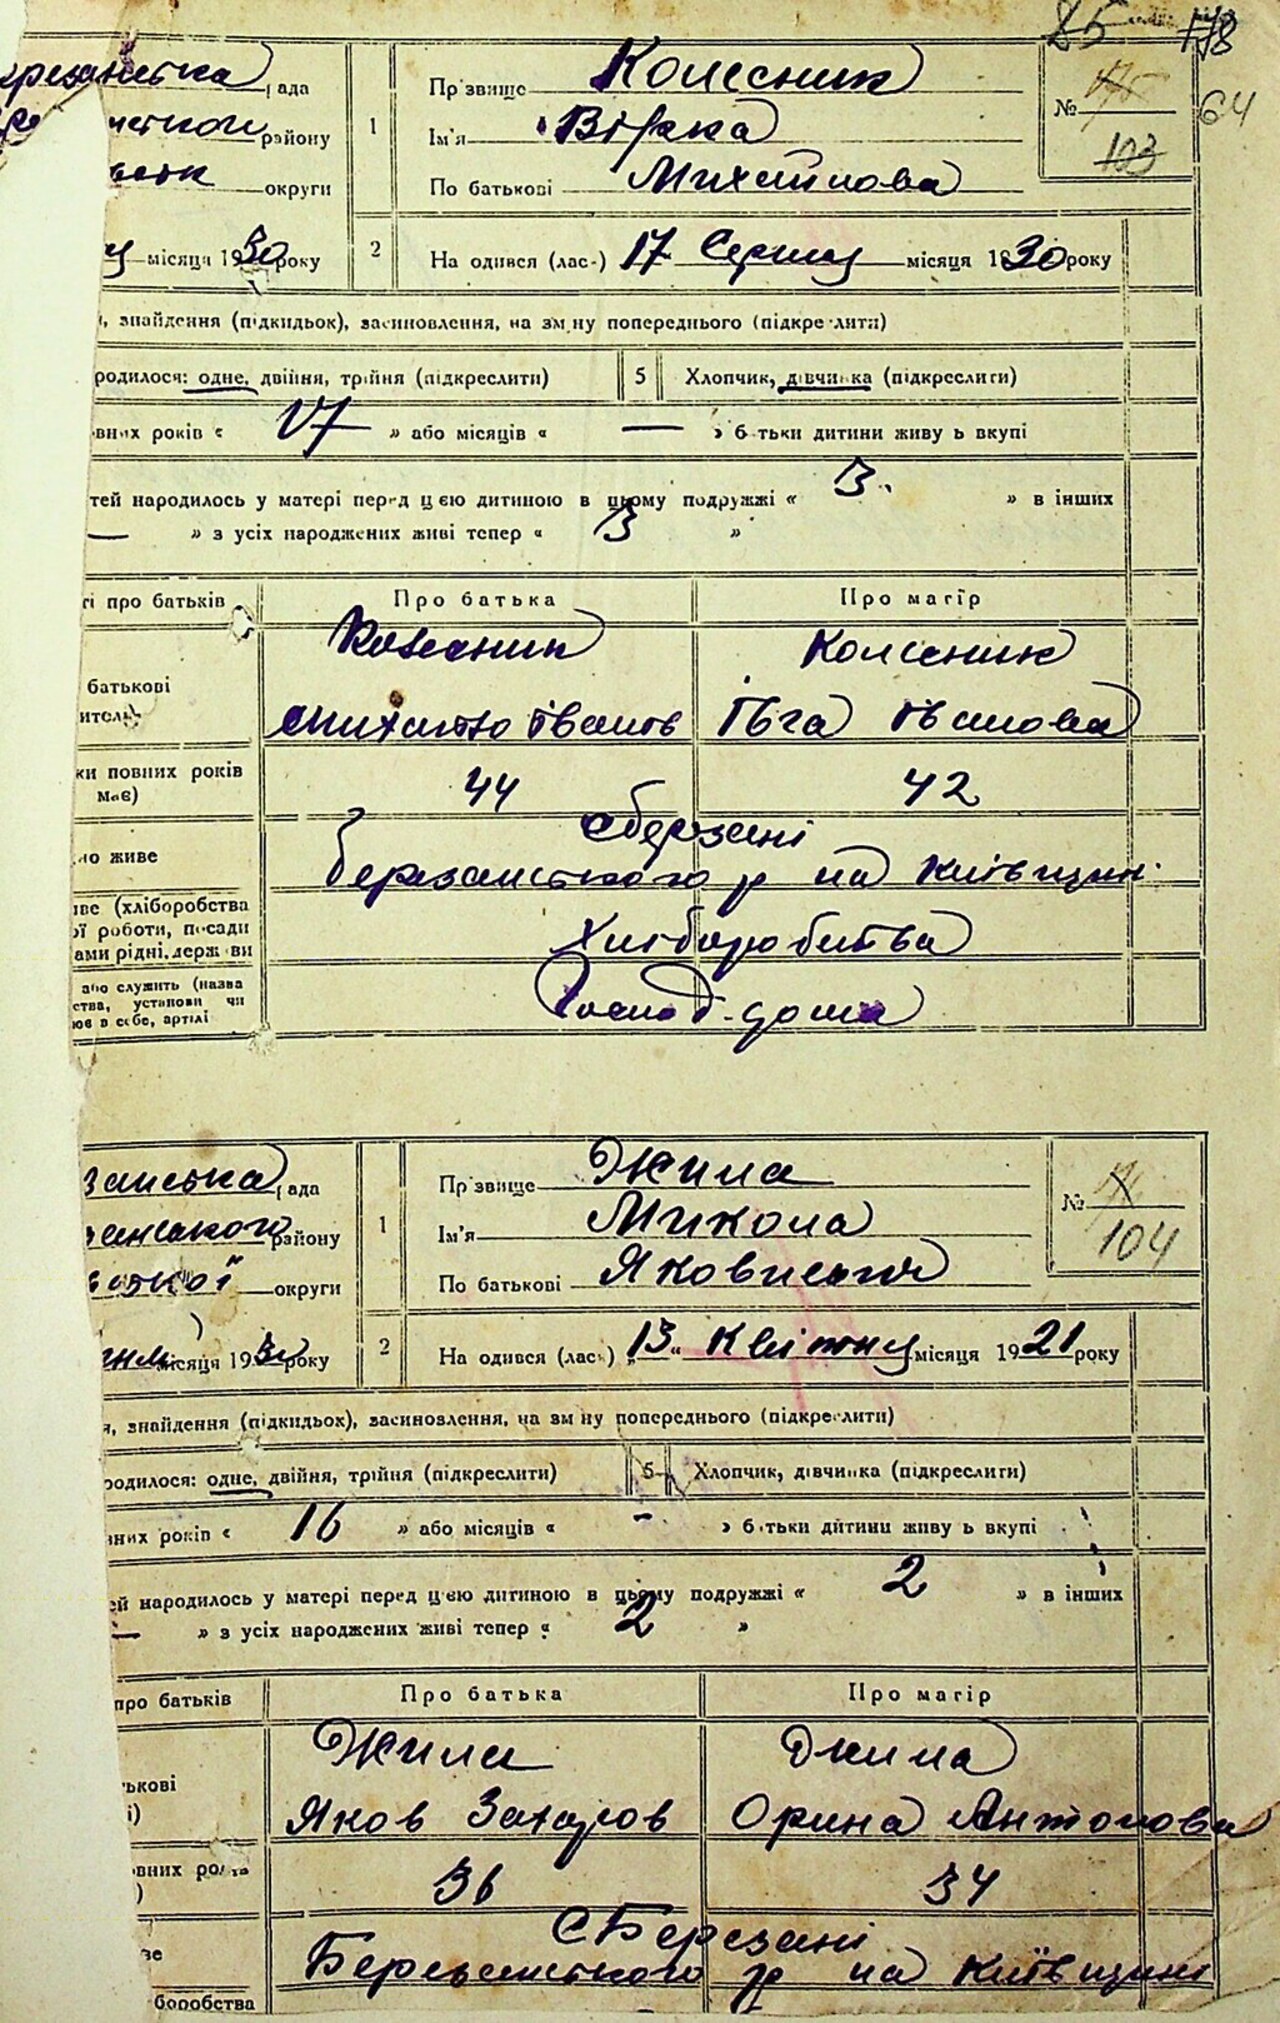 85 178
64
ада
району
округи
місяця 1930 року
1
Прізвище Колесник
Ім'я Вірка
По батькові Михайлова
№
103
2
На одився (лас-) 17 Серпня місяця 1930 року
знайдення (підкидьок), засиновлення, на зміну попереднього (підкреслити)
родилося: одне, двійня, трійня (підкреслити) 5 Хлопчик, дівчинка (підкреслити)
вних років « 17 » або місяців « — » батьки дитини живуть вкупі
тей народилось у матері перед цією дитиною в цьому подружжі « 3 » в інших
— » з усіх народжених живі тепер « 3 »
ті про батьків Про батька Про матір
Колесник Колесник
батькові
Михайло Іванов Івга Іванова
ки повних років 44 42
має)
с Березані
но живе Березанського р на Київщині
иве (хліборобства
ої роботи, посади Хліборобства
ами рідні, держави
або служить (назва
ства, установи чи Господ. дома
ює в себе, артілі
занська ада
занського району
ської округи
місяця 1930 року
1
Прізвище Жила
Ім'я Микола
По батькові Якович
№
104
2
На одився (лась) „13“ Квітня місяця 1921 року
я, знайдення (підкидьок), засиновлення, на зміну попереднього (підкреслити)
родилося: одне, двійня, трійня (підкреслити) 5 Хлопчик, дівчинка (підкреслити)
вних років « 16 » або місяців « - » батьки дитини живуть вкупі
ей народилось у матері перед цією дитиною в цьому подружжі « 2 » в інших
— » з усіх народжених живі тепер « 2 »
про батьків Про батька Про матір
Жила Жила
ькові
і) Яков Захаров Орина Антонова
вних років 36 34
)
с Березані
ве Березанського р на Київщині
боробства